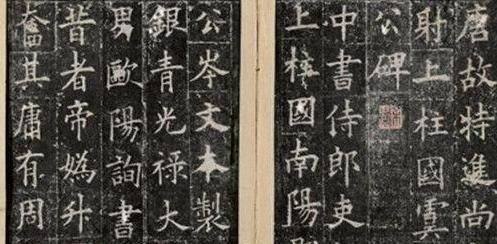 唐故特進尚
射上柱國虞
公碑
中書侍郎吏
上柱國南陽
公岑文本製
銀青光禄大
男歐陽詢書
昔者帝嬀升
奮其庸有周